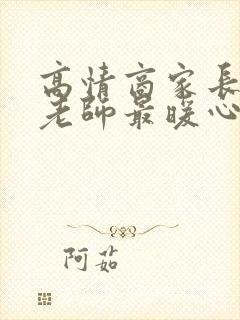 高情商家長
老師最暖心
阿茹